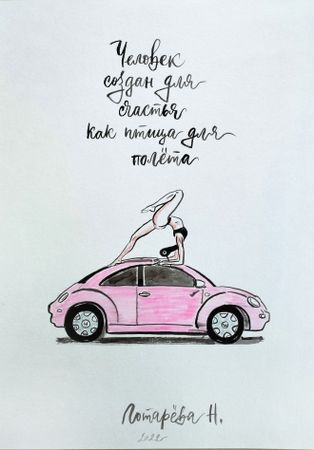 Человек
создан для
счастья
как птица для
полёта
Потарёва Н.
2022